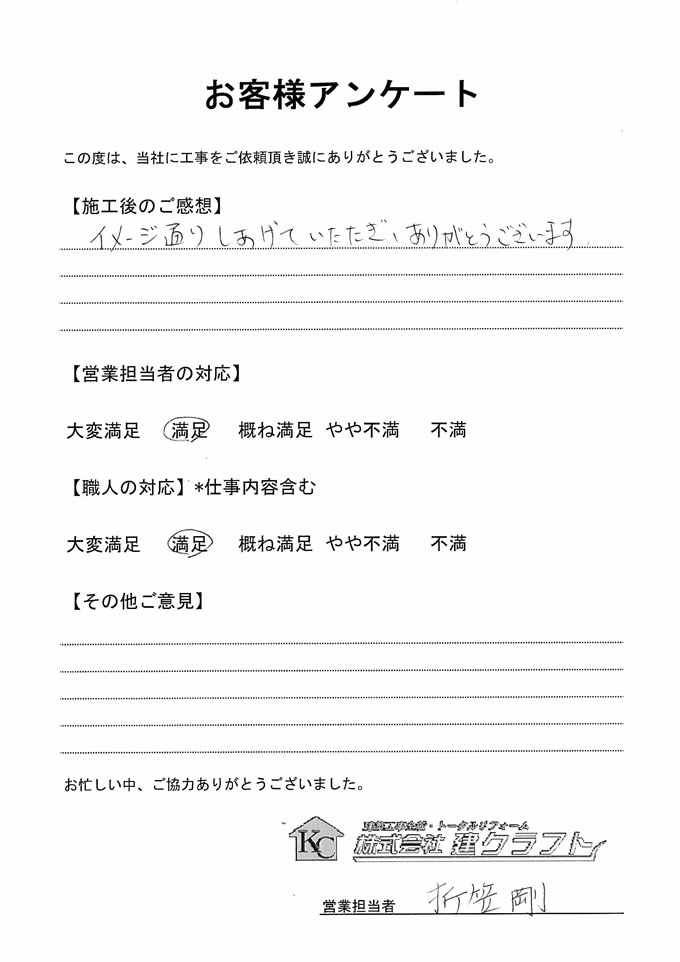 お客様アンケート
この度は、当社に工事をご依頼頂き誠にありがとうございました。
【施工後のご感想】
イメージ通りしあげていただき、ありがとうございます
【営業担当者の対応】
大変満足 満足 概ね満足 やや不満 不満
【職人の対応】*仕事内容含む
大変満足 満足 概ね満足 やや不満 不満
【その他ご意見】
お忙しい中、ご協力ありがとうございました。
KC
建築工事全般・トータルリフォーム
株式会社 建クラフト
営業担当者 折笠剛